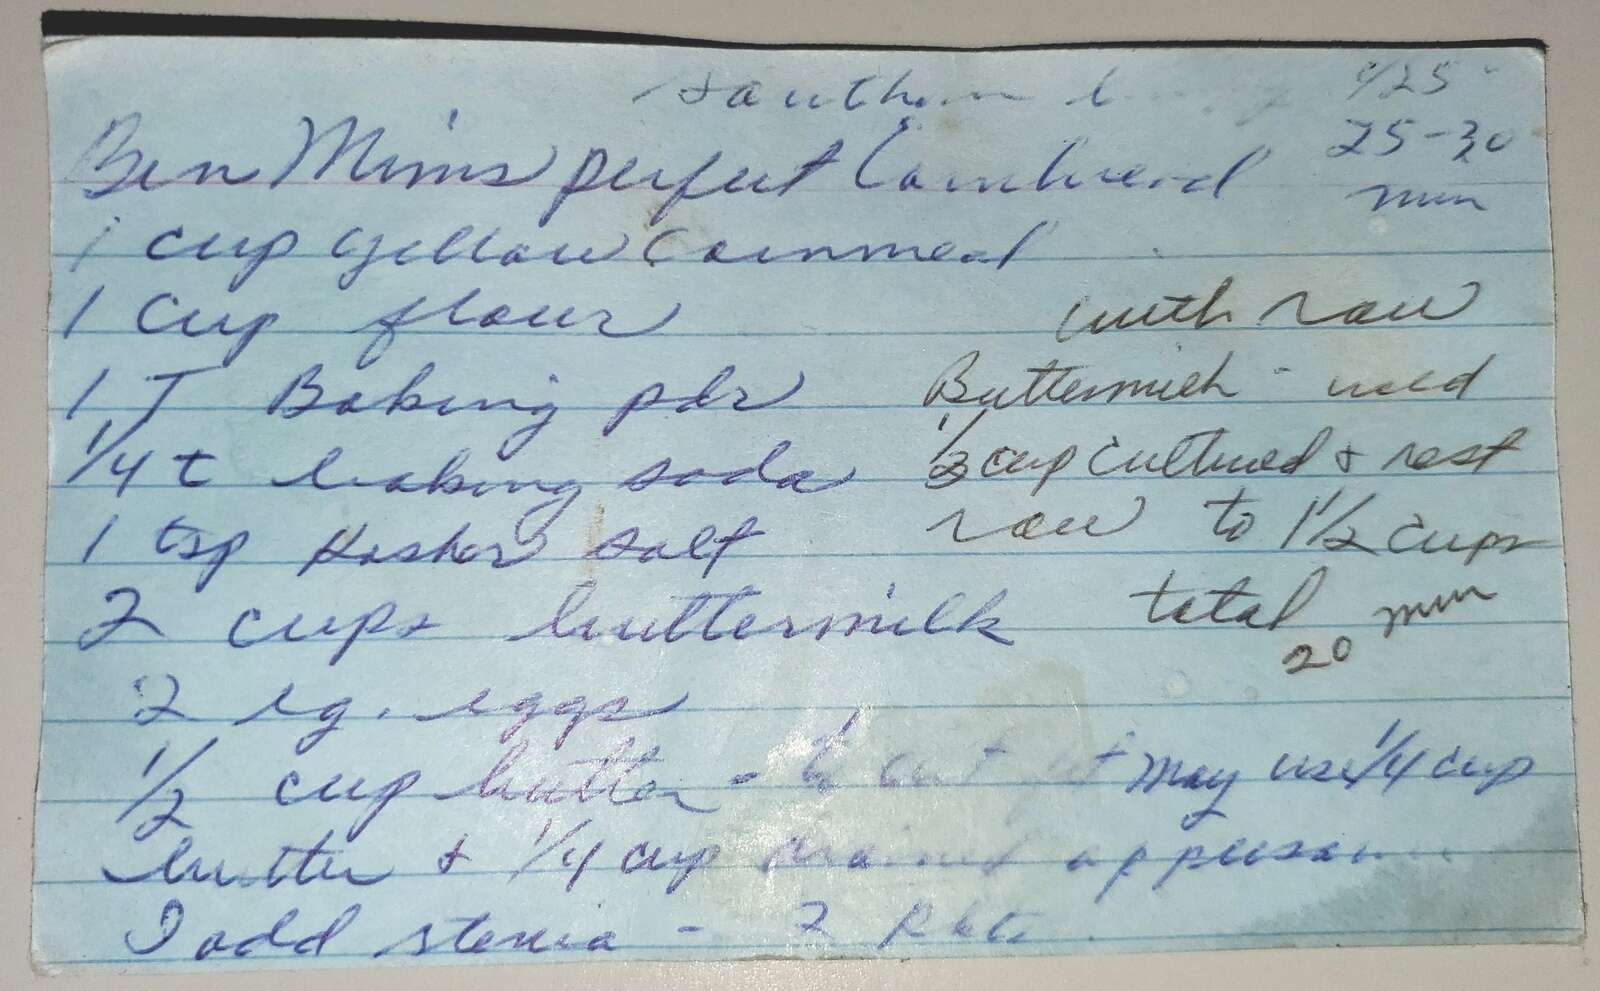 Southern 425
25-30
min
Ben Mims perfect Cornbread
1 cup yellow Cornmeal
1 cup flour
1 T Baking pdr
1/4 t baking soda
1 tsp Kosher salt
2 cups buttermilk
2 lg. eggs
1/2 cup butter - to cut fat may use 1/4 cup
butter & 1/4 cup applesauce
I add stevia - 2 pkts
with raw
Buttermilk - used
cup cultured & rest
raw to 1 1/2 cups
total
20 min